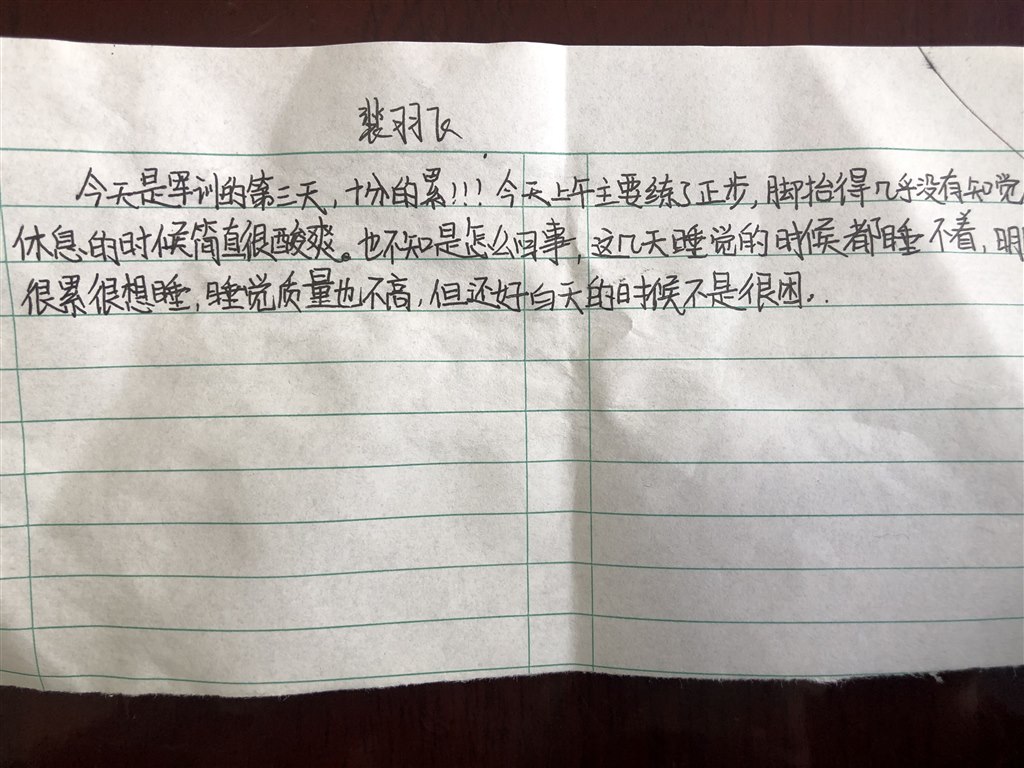 裴羽飞
今天是军训的第三天，十分的累!!! 今天上午主要练了正步，脚抬得几乎没有知觉
休息的时候简直很酸爽。也不知是怎么回事，这几天睡觉的时候都睡不着，明
很累很想睡，睡觉质量也不高，但还好白天的时候不是很困。